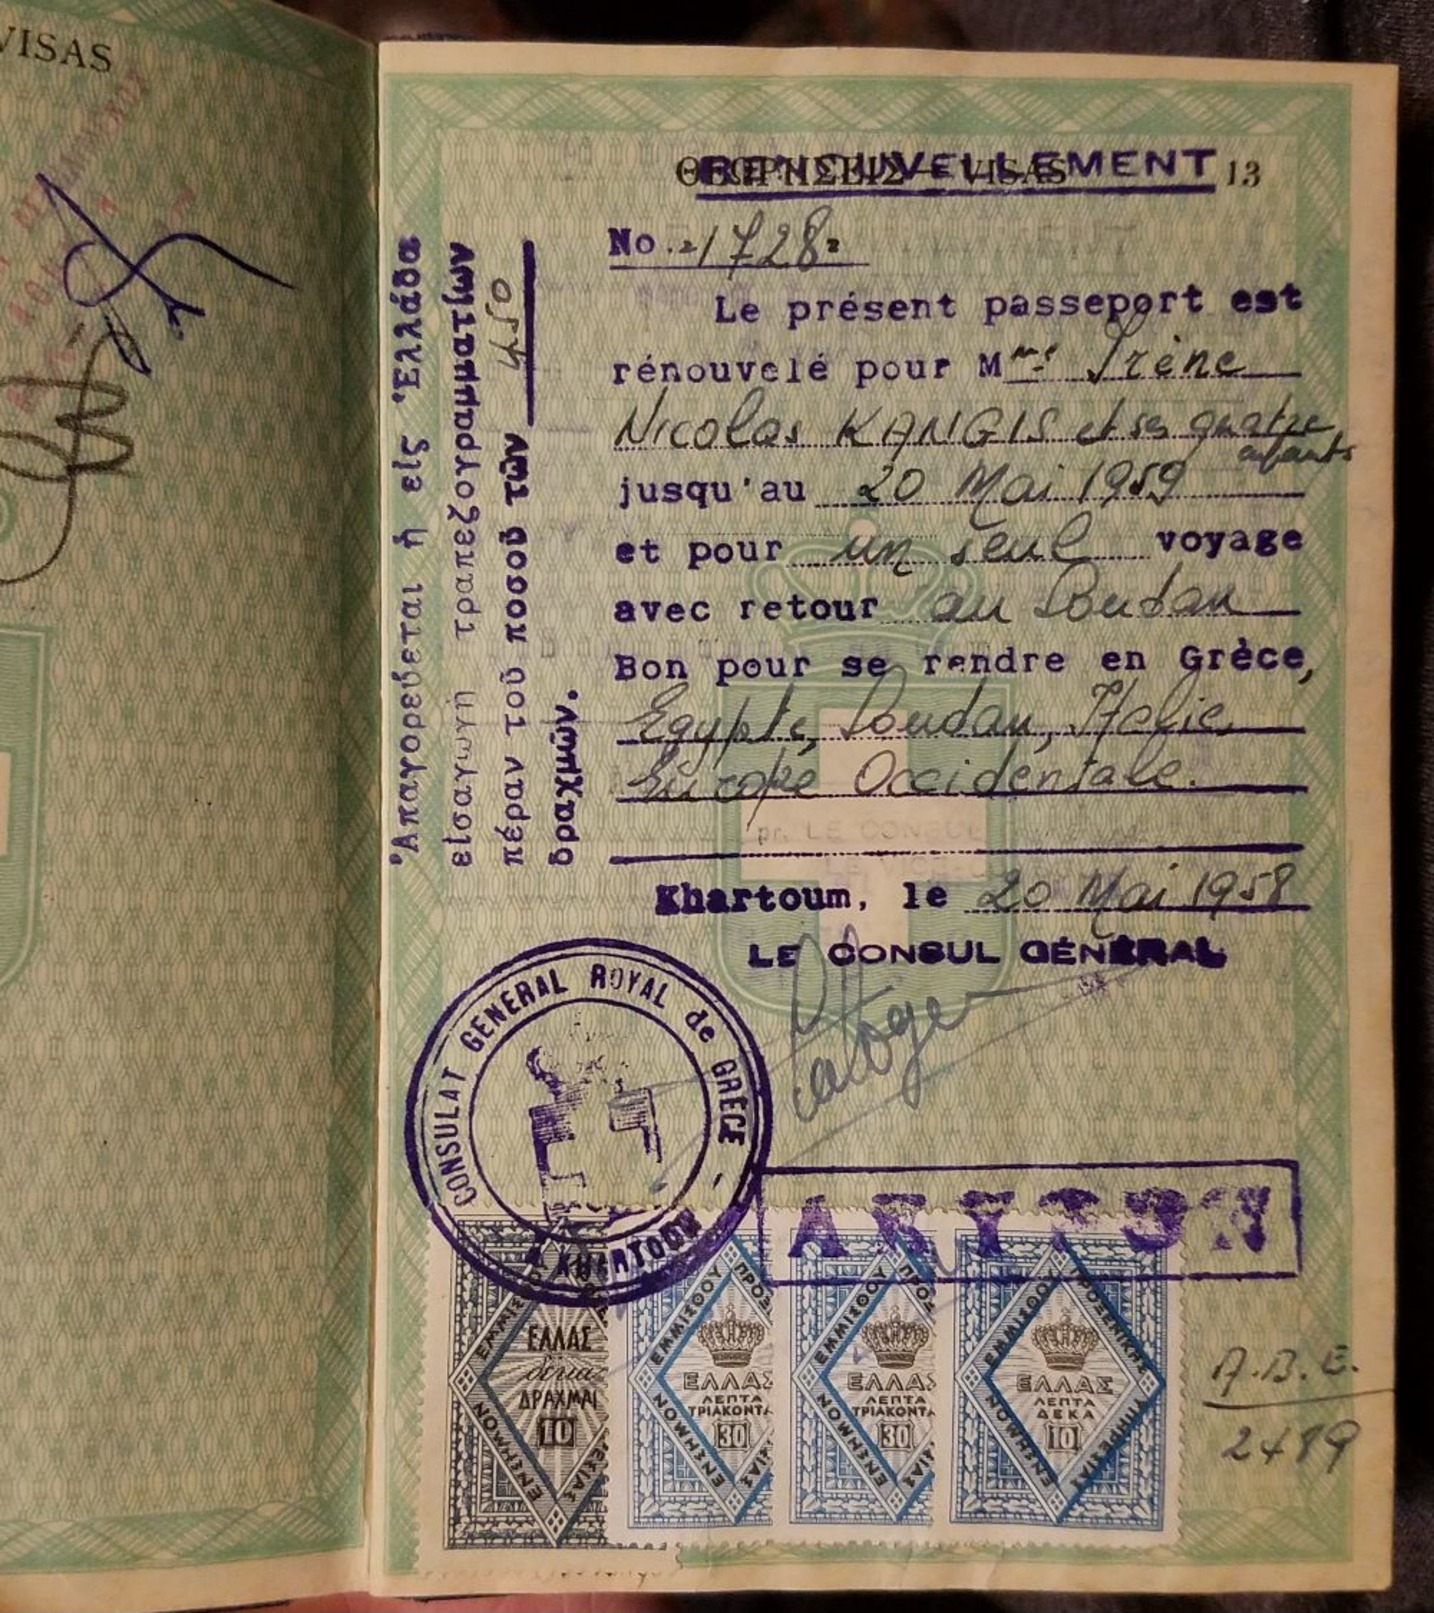 VISAS
ΘΕΩΡΗΣΕΙΣ — VISAS 13
RENOUVELLEMENT
No 1728
Le présent passeport est
rénouvelé pour Mme Irène
Nicolas KANGIS et ses quatre
enfants
jusqu'au 20 Mai 1959
et pour un seul voyage
avec retour au Soudan
Bon pour se rendre en Grèce,
Egypte, Soudan, Italie,
Europe Occidentale.
Khartoum, le 20 Mai 1958
LE CONSUL GÉNÉRAL
Ἀπαγορεύεται ἡ εἰς Ἑλλάδα
εἰσαγωγὴ τραπεζογραμματίων
πέραν τοῦ ποσοῦ τῶν 450
δραχμῶν.
pr. LE CONSUL
CONSULAT GENERAL ROYAL de GRECE
A KHARTOUM
ΕΛΛΑΣ
δέκα
ΔΡΑΧΜΑΙ
10
ΕΝΣΗΜΟΝ
ΕΜΜΙΣΘΟΥ
ΕΛΛΑΣ
ΛΕΠΤΑ
ΤΡΙΑΚΟΝΤΑ
30
ΕΝΣΗΜΟΝ
ΕΜΜΙΣΘΟΥ
ΕΛΛΑΣ
ΛΕΠΤΑ
ΤΡΙΑΚΟΝΤΑ
30
ΕΝΣΗΜΟΝ
ΕΜΜΙΣΘΟΥ ΠΡΟΞΕΝΙΚΗΣ
ΕΛΛΑΣ
ΛΕΠΤΑ
ΔΕΚΑ
10
ΕΝΣΗΜΟΝ ΥΠΗΡΕΣΙΑΣ
A.B.E.
2489